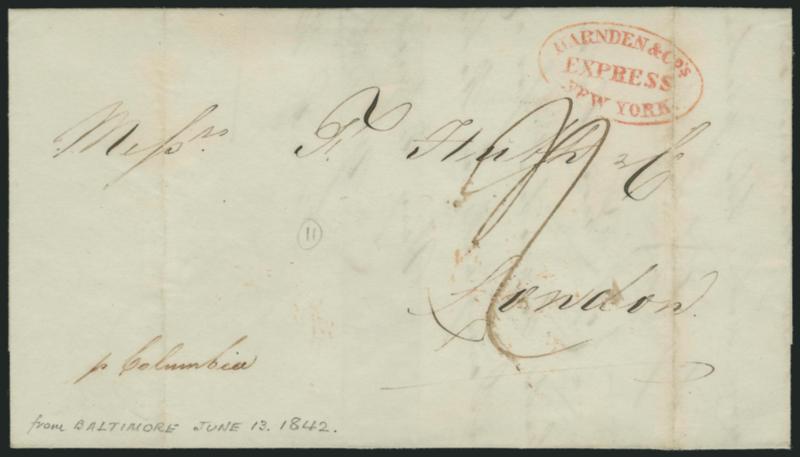 HARNDEN & Co's
EXPRESS
NEW YORK
Messrs F. Huth & Co
11
London.
p Columbia
from BALTIMORE JUNE 13. 1842.